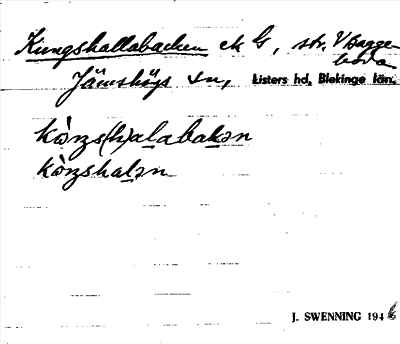 Kungshallabacken ek G, str. V Bagge-
boda
Jämshögs sn, Listers hd, Blekinge län.
kòŋs(h)alabakən
kòŋshalən
J. SWENNING 1946